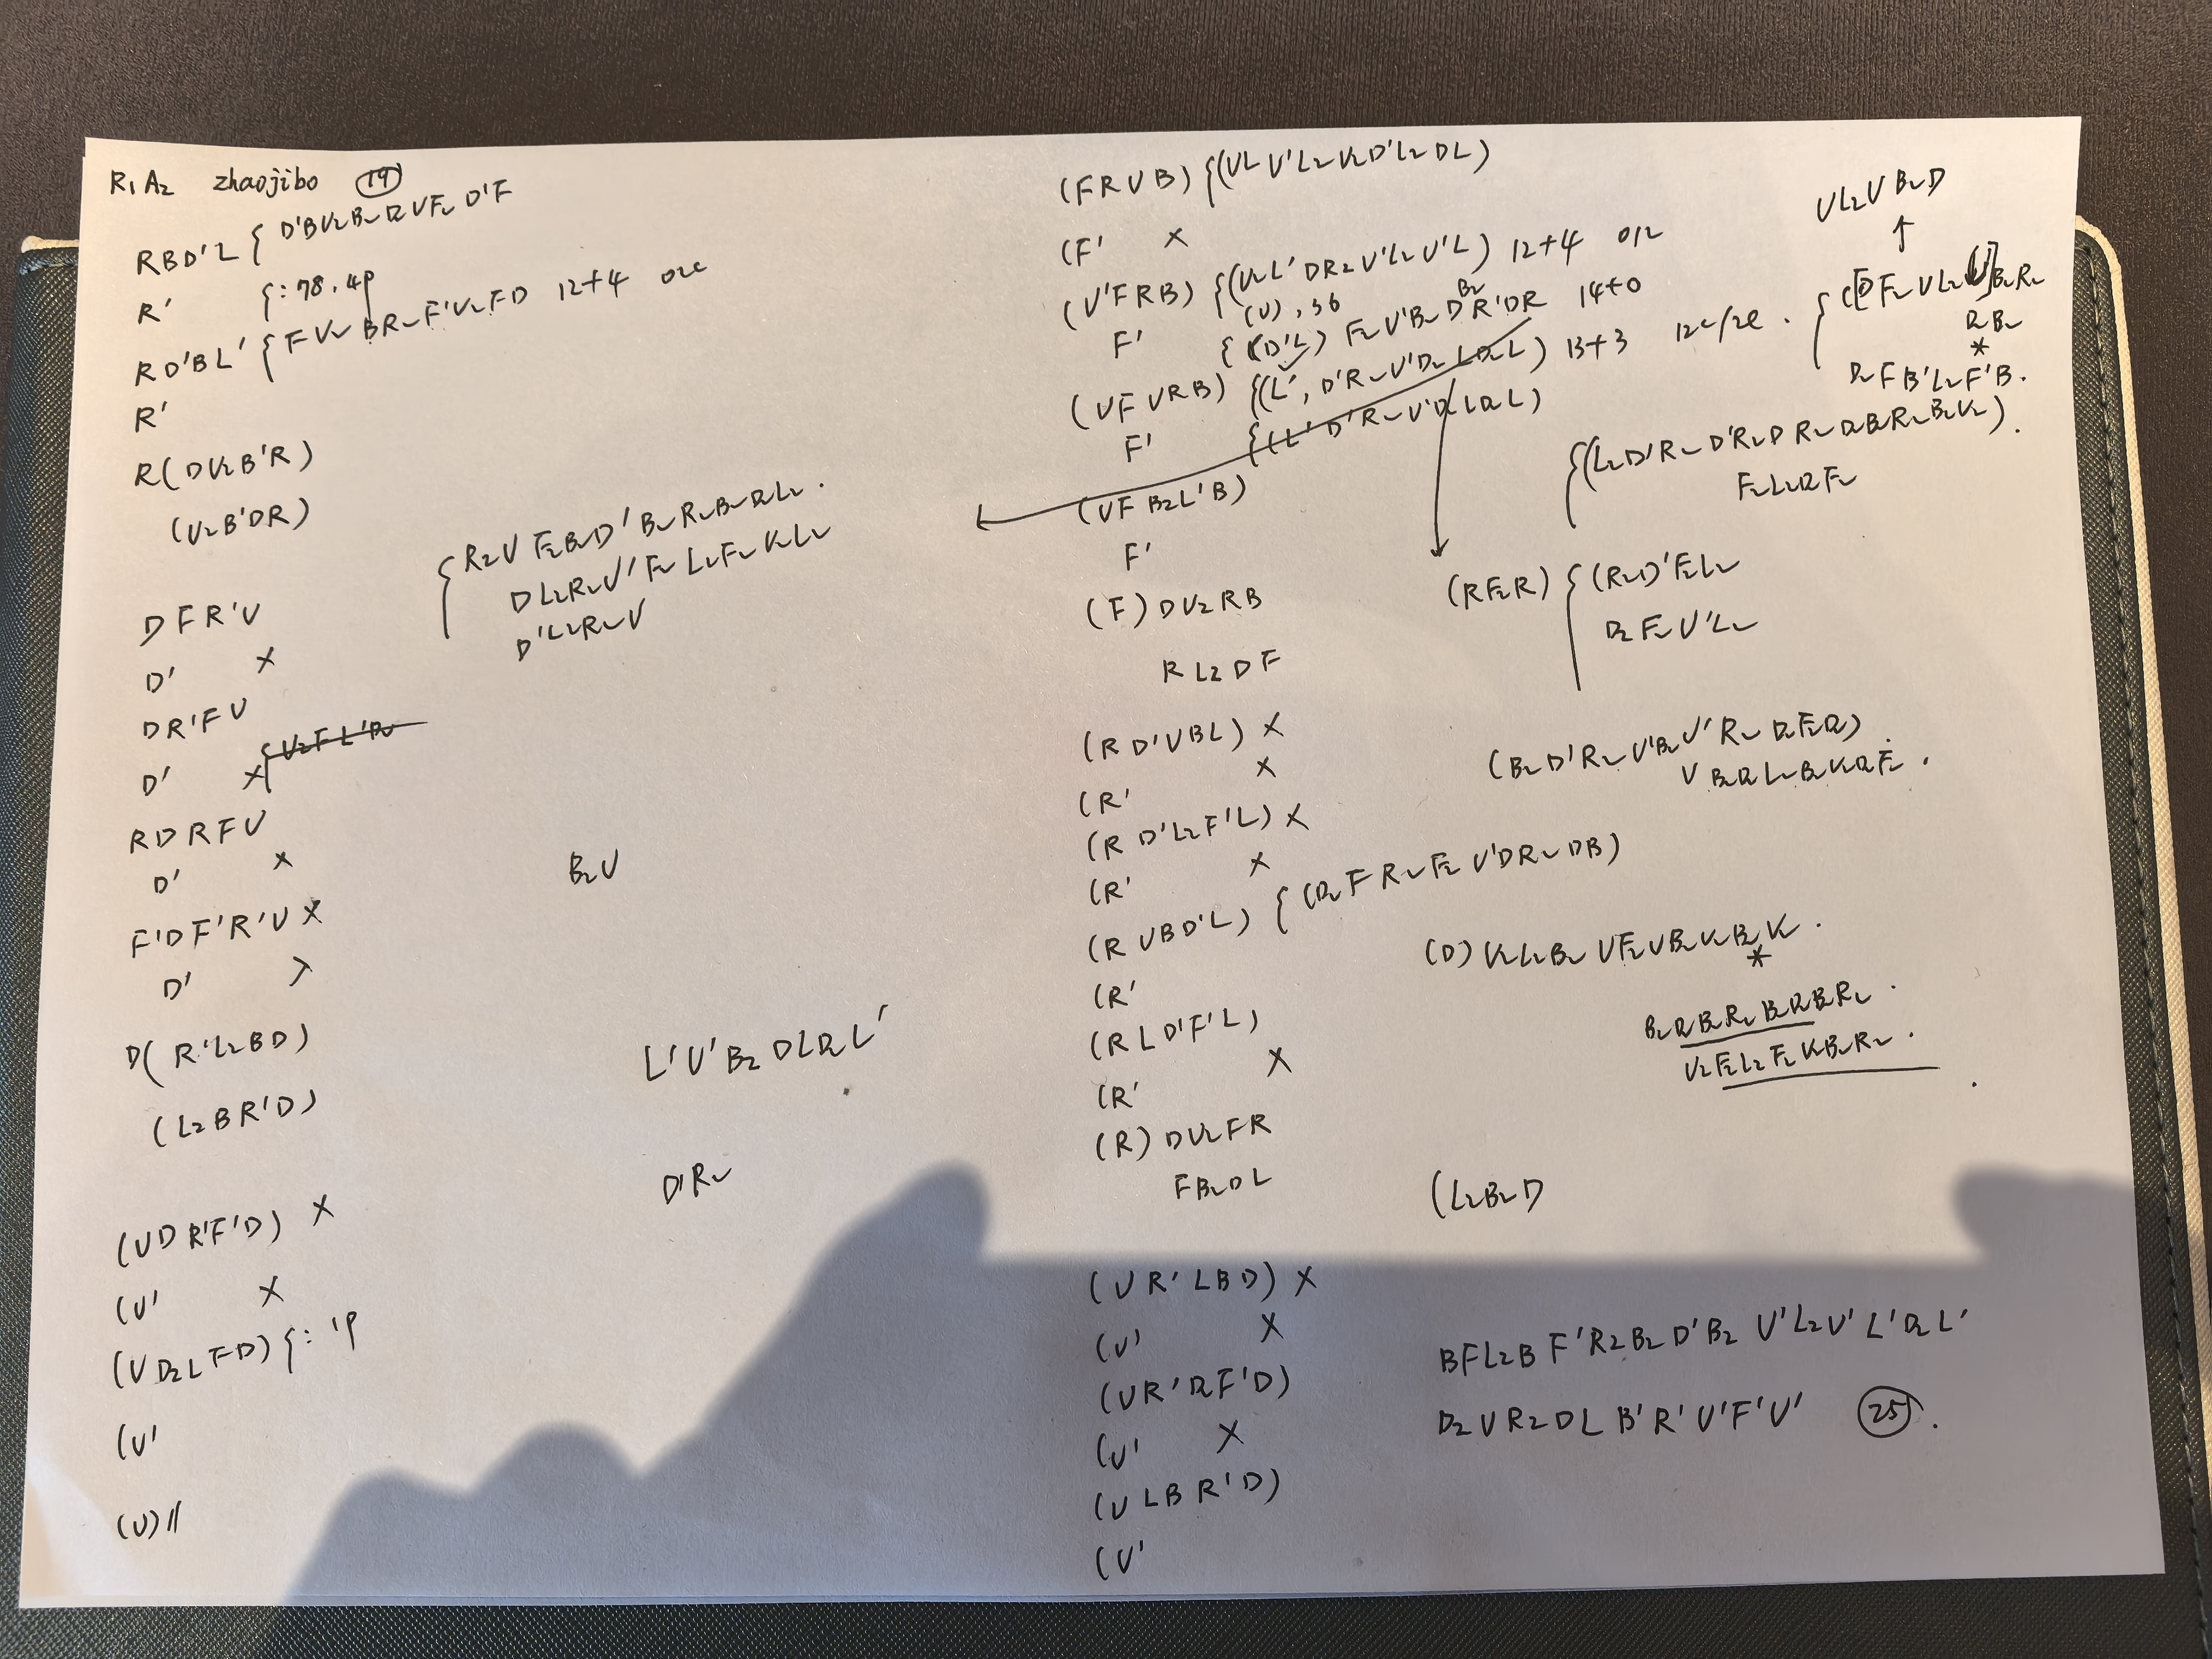 R1A2 zhaojibo 19
RBD'L { D'BU2B2D2UF2D'F
R' {:78.4p
RD'BL' { FU2BR2F'U2FD 12+4 02c
R'
R(DU2B'R)
(U2B'DR)
{ R2UF2B2D'B2R2B2D2L2.
DL2R2U'F2L2F2U2L2
D'L2R2U
DFR'U
D' X
DR'FU
D' X
RDRFU
D' X
B2U
F'DF'R'U X
D'
D(R'L2BD)
(L2BR'D)
L'U'B2DLD2L'
D'R2
(UDR'F'D) X
(U' X
(UD2LFD) {: 1p
(U'
(U)//
(FRUB) {(ULU'L2U2D'L2DL)
(F' X
(U'FRB) {(U2L'DR2U'L2U'L) 12+4 012
(U), 36
F' {(D'L) F2U'B2DR'DR 14+0
B2
(UFURB) {(L', D'R2U'D2LD2L) 13+3 12c/2e.
F' {(L'D'R2U'D2LD2L)
(UFB2L'B)
F'
(F)DU2RB
RL2DF
(RD'UBL) X
(R' X
(RD'L2F'L) X
(R' X
(RUBD'L) {(D2FR2F2U'DR2DB)
(R'
(RLD'F'L)
(R' X
(R)DU2FR
FB2DL
(UR'LBD) X
(U' X
(UR'D2F'D)
(U' X
(ULBR'D)
(U'
UL2UB2D
↑
D2B2
*
D2FB'L2F'B.
{(L2D'R2D'R2DR2D2B2R2B2U2).
F2L2D2F2
(RF2R) {(R2D'F2L2
D2F2U'L2
(B2D'R2U'B2U'R2D2F2D2)
UB2D2L2B2U2D2F2.
(D)U2L2B2UF2UB2U2B2U2.
*
B2D2B2R2B2D2B2R2.
U2F2L2F2U2B2R2.
(L2B2D
BFL2BF'R2B2D'B2U'L2U'L'D2L'
D2UR2DLB'R'U'F'U' 25.